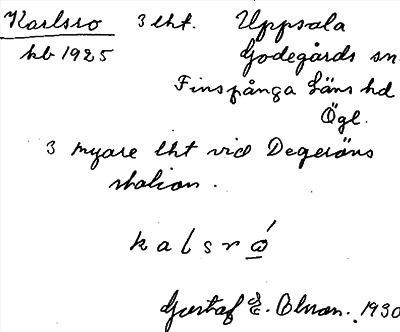 Karlsro 3 lht. Uppsala
kb 1925 Godegårds sn
Finspånga läns hd
Ögl.
3 nyare lht vid Degeröns
station.
kalsró
Gustaf E. Olsson. 1930